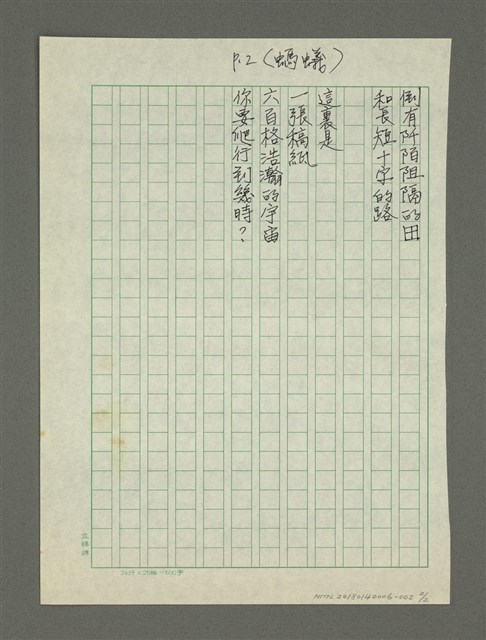 P.2（螞蟻）
倒有阡陌阻隔的田
和長短十字的路
這裏是
一張稿紙
六百格浩瀚的宇宙
你要爬行到幾時？
24行×25格=600字
NMTL20180140006-002 2/2